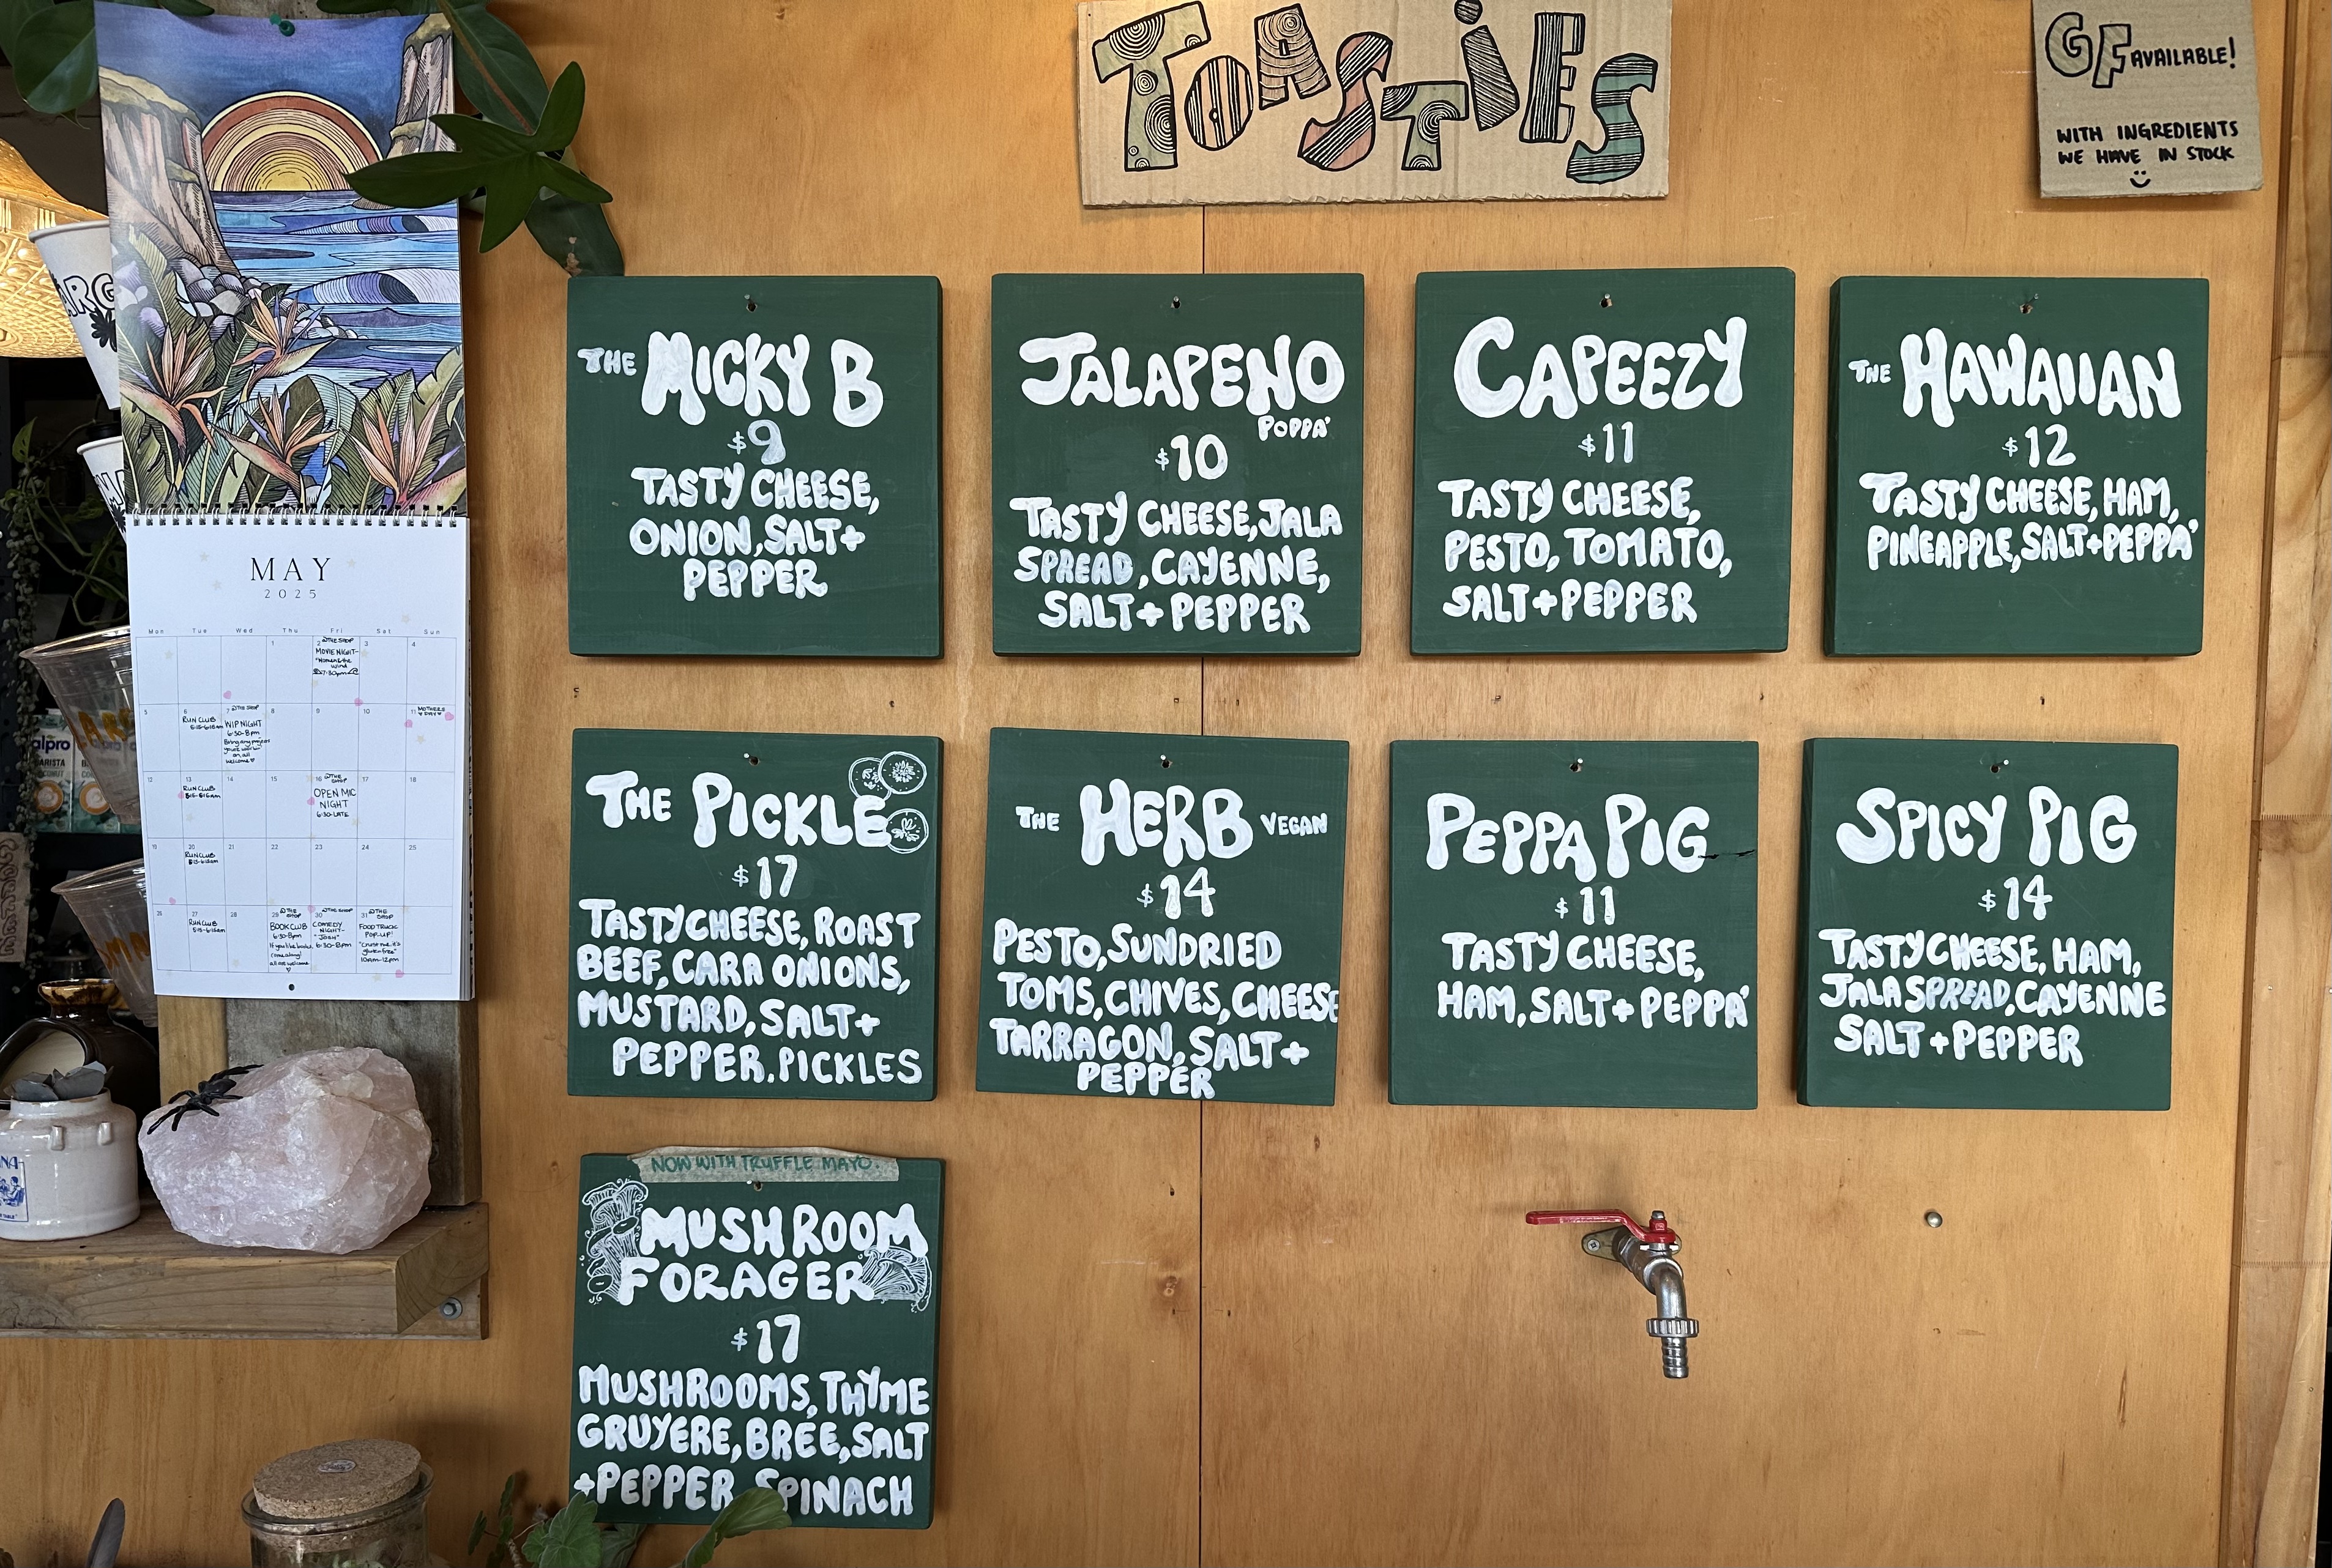 TOASTIES
GF AVAILABLE!
WITH INGREDIENTS
WE HAVE IN STOCK
THE MICKY B
$9
TASTY CHEESE,
ONION, SALT+
PEPPER
JALAPENO
POPPA'
$10
TASTY CHEESE, JALA
SPREAD, CAYENNE,
SALT + PEPPER
CAPEEZY
$11
TASTY CHEESE,
PESTO, TOMATO,
SALT + PEPPER
THE HAWAIIAN
$12
TASTY CHEESE, HAM,
PINEAPPLE, SALT+PEPPA'
THE PICKLE
$17
TASTY CHEESE, ROAST
BEEF, CARA ONIONS,
MUSTARD, SALT+
PEPPER. PICKLES
THE HERB VEGAN
$14
PESTO, SUNDRIED
TOMS, CHIVES, CHEESE
TARRAGON, SALT+
PEPPER
PEPPA PIG
$11
TASTY CHEESE,
HAM, SALT + PEPPA'
SPICY PIG
$14
TASTY CHEESE, HAM,
JALA SPREAD, CAYENNE
SALT + PEPPER
NOW WITH TRUFFLE MAYO.
MUSHROOM
FORAGER
$17
MUSHROOMS, THYME
GRUYERE, BREE, SALT
+PEPPER SPINACH
MAY
2025
Mon Tue Wed Thu Fri Sat Sun
1 2 3 4
@THE SHOP
MOVIE NIGHT-
7:30pm
5 6 7 8 9 10 11
RUN CLUB
5:15-6:15am
@THE SHOP
WIP NIGHT
6:30-8pm
Bring any project
you're workin
on, all
welcome
MOTHERS
DAY
12 13 14 15 16 17 18
RUN CLUB
5:15-6:15am
@THE
SHOP
OPEN MIC
NIGHT
6:30-LATE
19 20 21 22 23 24 25
RUN CLUB
5:15-6:15am
26 27 28 29 30 31
RUN CLUB
5:15-6:15am
@THE
SHOP
BOOK CLUB
6:30-8pm
all are welcome
@THE SHOP
COMEDY
NIGHT-
6:30-8pm
@THE
SHOP
FOOD TRUCK
POP-UP!
10am-12pm
alpro
BARISTA